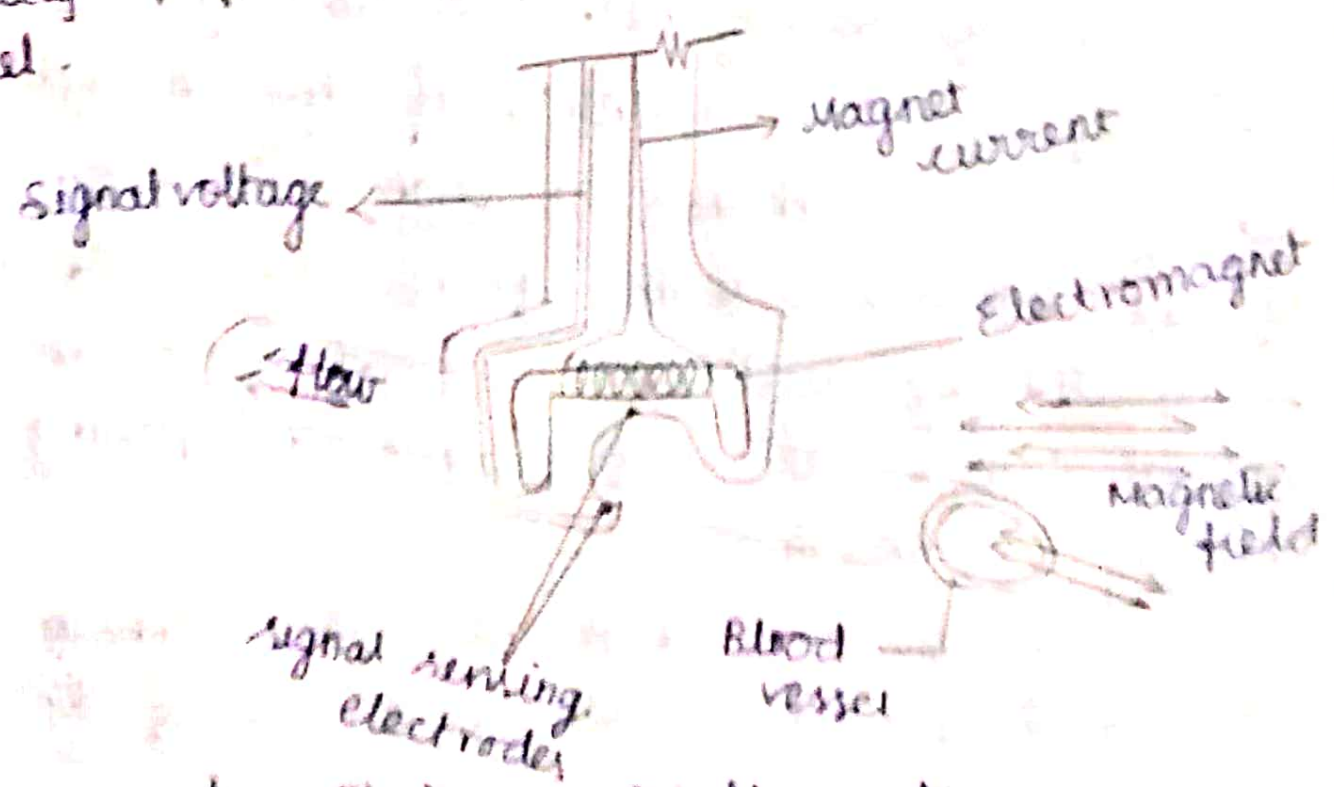 el.
Magnet
current
Signal voltage
Electromagnet
flow
Magnetic
field
signal sensing
electrodes
Blood
vessel